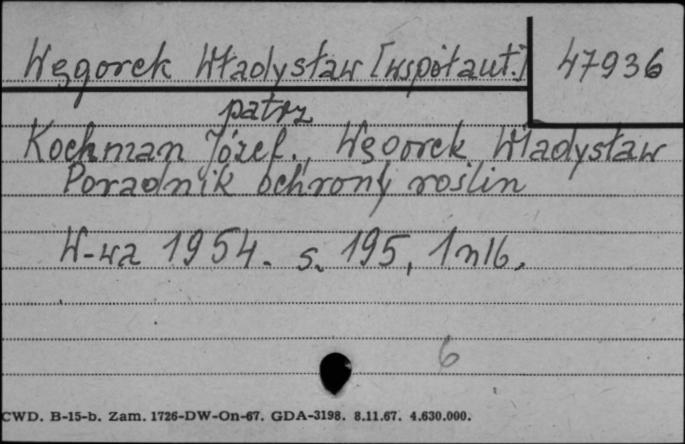 Węgorek Władysław [współaut.] 47936
patrz
Kochman Józef., Węgorek Władysław
Poradnik ochrony roślin
W-wa 1954. s. 195, 1 nlb,
6
CWD. B-15-b. Zam. 1726-DW-On-67. GDA-3198. 8.11.67. 4.630.000.